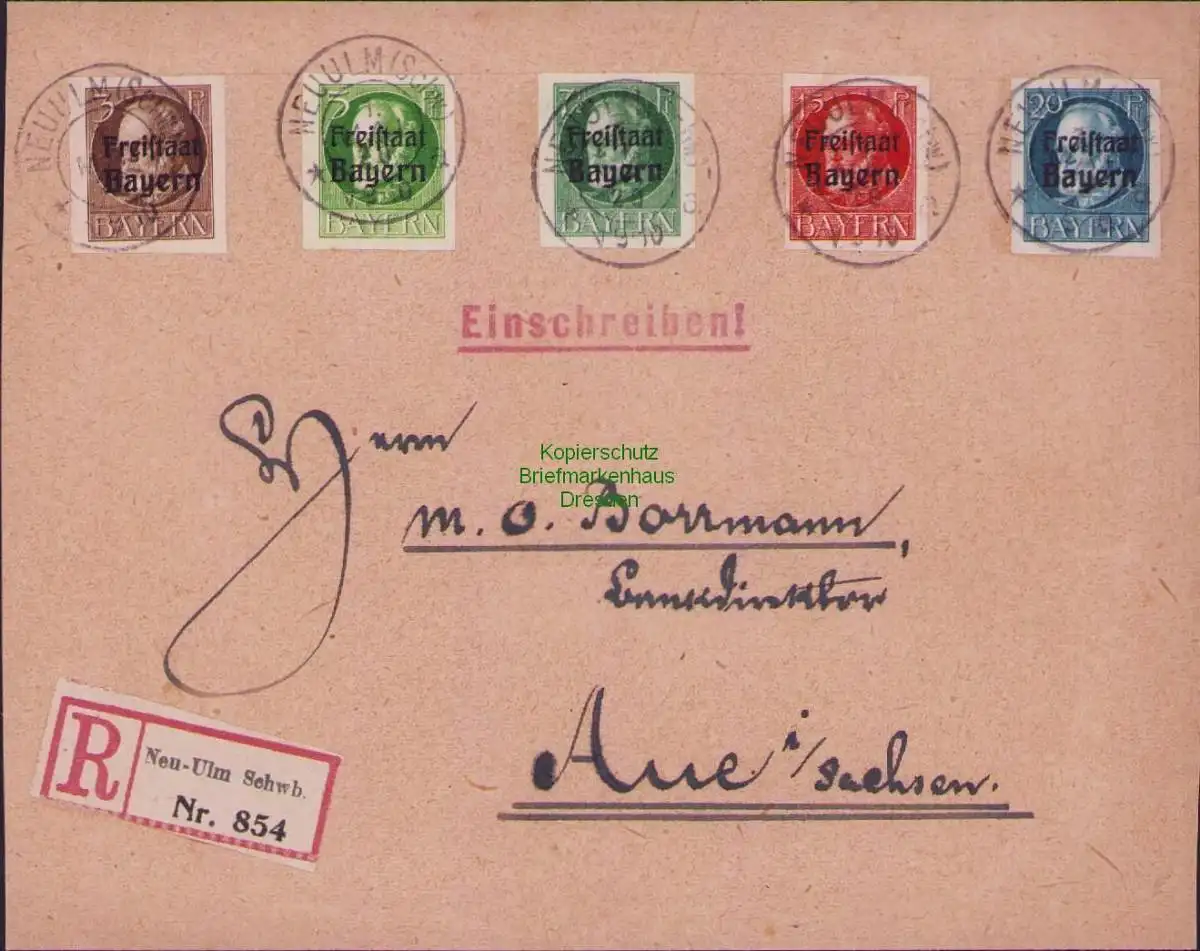 3 Pf
Freistaat
Bayern
BAYERN
5 Pf
Freistaat
Bayern
BAYERN
7½ Pf
Freistaat
Bayern
BAYERN
15 Pf
Freistaat
Bayern
BAYERN
20 Pf
Freistaat
Bayern
NEUULM (SCHW)
NEUULM (SCHW)
Einschreiben!
Herrn
M. O. Borrmann,
Bankdirektor
Aue i/Sachsen.
Kopierschutz
Briefmarkenhaus
Dresden
R
Neu-Ulm Schwb.
Nr. 854